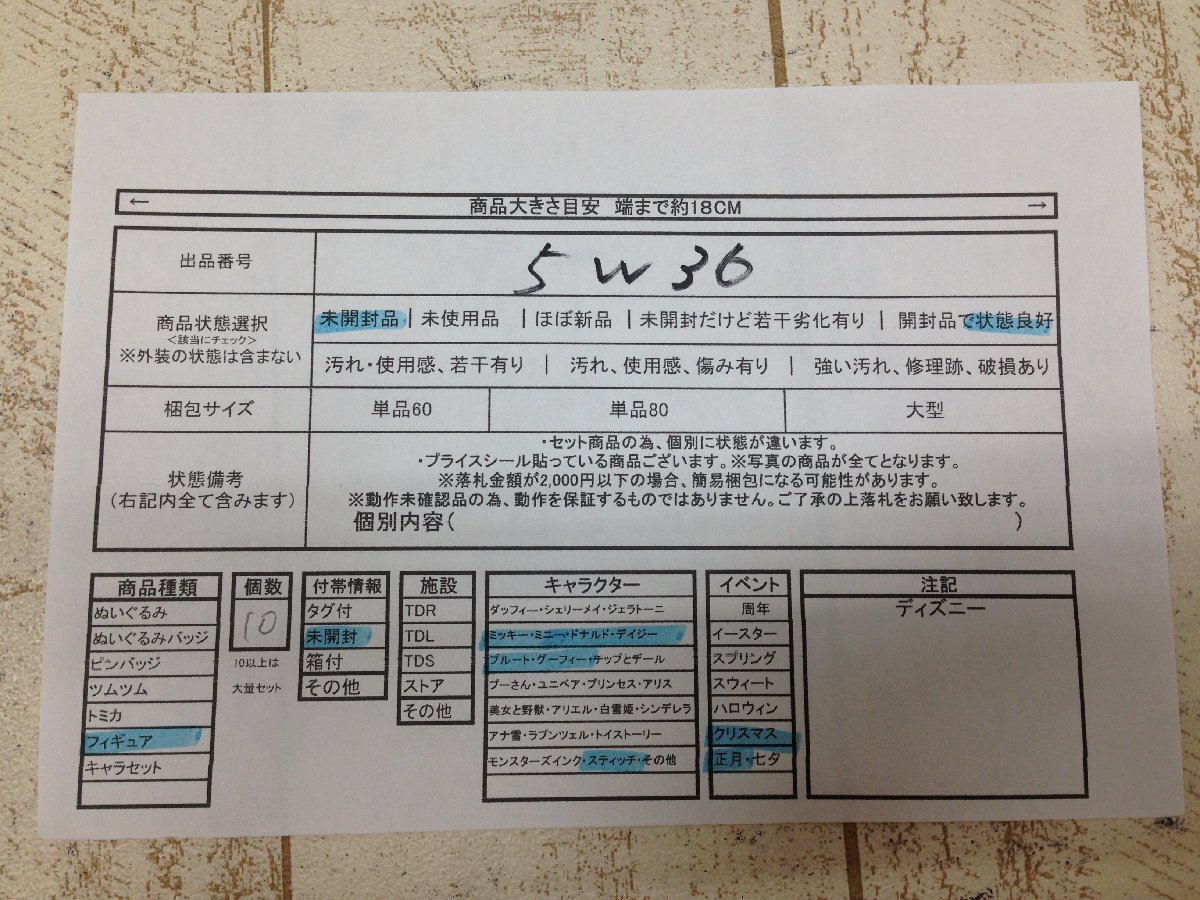 ← 商品大きさ目安 端まで約18CM →
出品番号 5W36
商品状態選択
<該当にチェック>
※外装の状態は含まない
未開封品 | 未使用品 | ほぼ新品 | 未開封だけど若干劣化有り | 開封品で状態良好
汚れ・使用感、若干有り | 汚れ、使用感、傷み有り | 強い汚れ、修理跡、破損あり
梱包サイズ 単品60 単品80 大型
状態備考
(右記内全て含みます)
・セット商品の為、個別に状態が違います。
・プライスシール貼っている商品ございます。※写真の商品が全てとなります。
※落札金額が2,000円以下の場合、簡易梱包になる可能性があります。
※動作未確認品の為、動作を保証するものではありません。ご了承の上落札をお願い致します。
個別内容( )
商品種類
ぬいぐるみ
ぬいぐるみバッジ
ピンバッジ
ツムツム
トミカ
フィギュア
キャラセット
個数
10
10以上は
大量セット
付帯情報
タグ付
未開封
箱付
その他
施設
TDR
TDL
TDS
ストア
その他
キャラクター
ダッフィー・シェリーメイ・ジェラトーニ
ミッキー・ミニー・ドナルド・デイジー
プルート・グーフィー・チップとデール
プーさん・ユニベア・プリンセス・アリス
美女と野獣・アリエル・白雪姫・シンデレラ
アナ雪・ラプンツェル・トイストーリー
モンスターズインク・スティッチ・その他
イベント
周年
イースター
スプリング
スウィート
ハロウィン
クリスマス
正月・七夕
注記
ディズニー